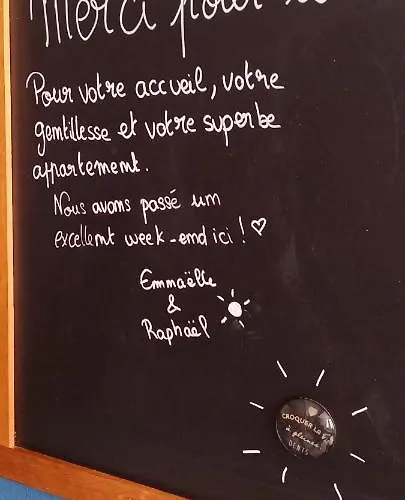 Merci pour
Pour votre accueil, votre
gentillesse et votre superbe
appartement.
Nous avons passé un
excellent week-end ici ! ♡
Emmaëlle
&
Raphaël
CROQUER LA
à pleines
DENTS